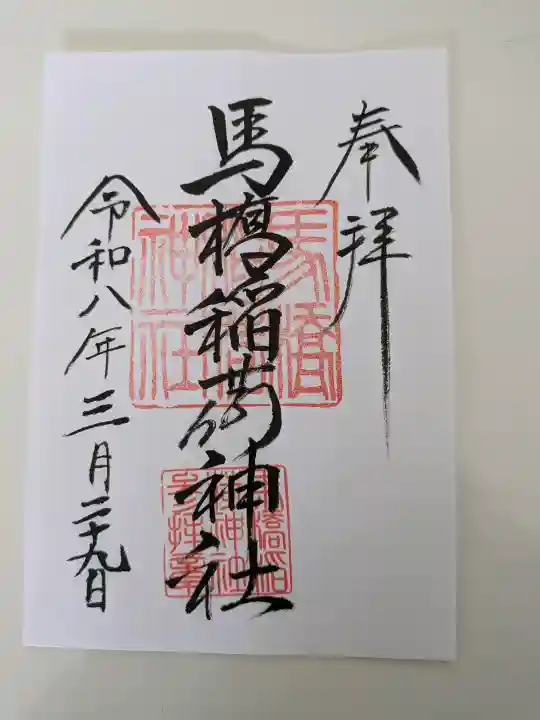 奉拝
馬橋稲荷神社
令和八年三月二十九日
馬橋稲荷神社
馬橋稲荷神社参拝章